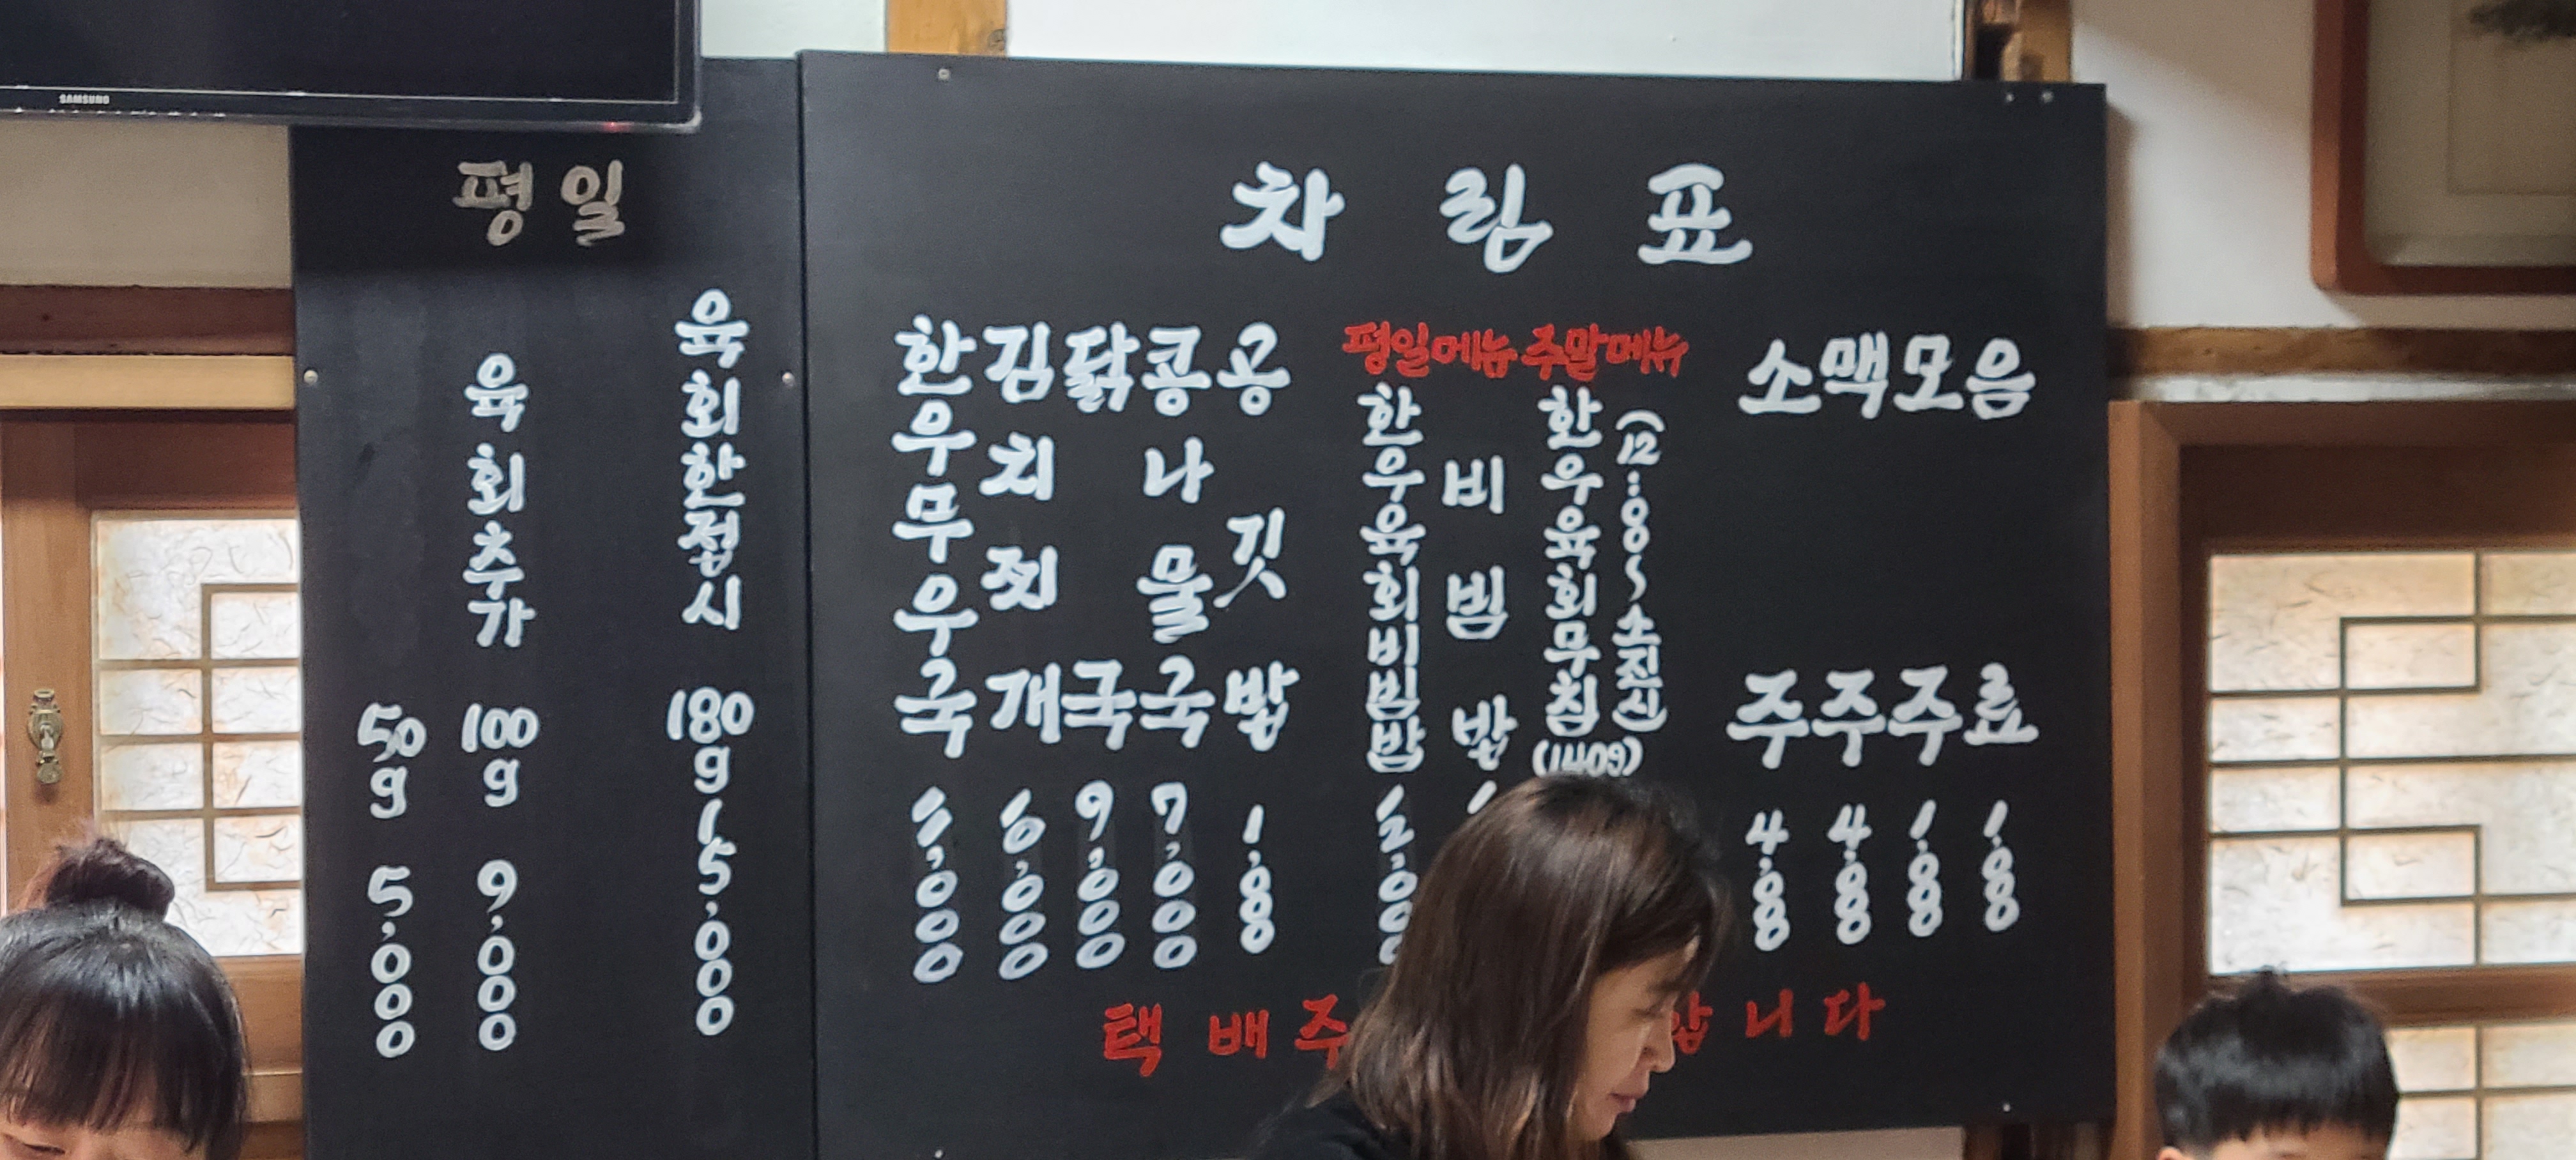 SAMSUNG
평일
육회한접시 180g 15,000
육회추가 100g 9,000
50g 5,000
차림표
한우무우국
김치찌개 6,000
닭국 9,000
콩나물국 7,000
공깃밥 1,00
평일메뉴
한우육회비빔밥
비빔밥
주말메뉴
한우육회무침 (140g)
(12:00~소진시)
소주 4,00
맥주 4,00
모주 1,00
음료 1,00
택배주
합니다